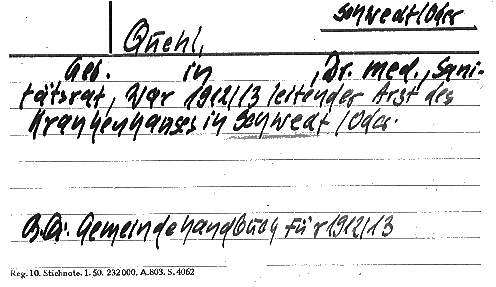 Schwedt/Oder
Quehl,
Geb. in , Dr. med., Sani-
tätsrat, war 1912/13 leitender Arzt des
Krankenhauses in Schwedt/Oder.
B.Q.: Gemeindehandbuch für 1912/13
Reg. 10. Stichnote. 1. 50. 232000. A.803. S. 4062